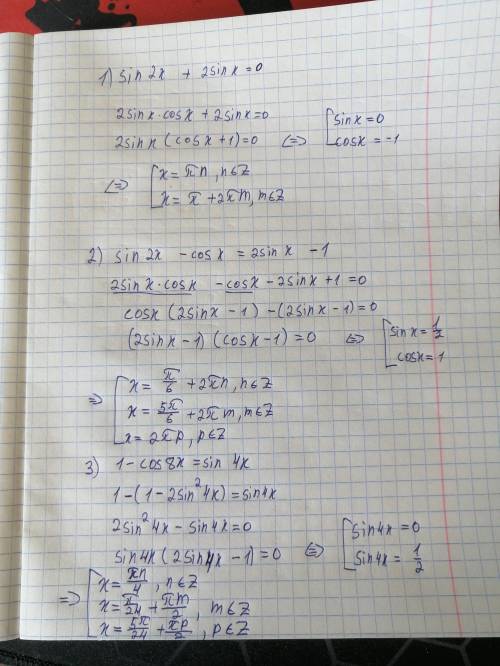 1) sin 2x + 2sin x = 0
2sin x · cos x + 2sin x = 0
2sin x (cos x + 1) = 0 <=> [ sin x = 0
cos x = -1
<=> [ x = πn, n∈Z
x = π + 2πm, m∈Z
2) sin 2x - cos x = 2sin x - 1
2sin x · cos x - cos x - 2sin x + 1 = 0
cos x (2sin x - 1) - (2sin x - 1) = 0
(2sin x - 1) (cos x - 1) = 0 <=> [ sin x = 1/2
cos x = 1
=> [ x = π/6 + 2πn, n∈Z
x = 5π/6 + 2πm, m∈Z
x = 2πp, p∈Z
3) 1 - cos 8x = sin 4x
1 - (1 - 2sin² 4x) = sin 4x
2sin² 4x - sin 4x = 0
sin 4x (2sin 4x - 1) = 0 <=> [ sin 4x = 0
sin 4x = 1/2
=> [ x = πn/4, n∈Z
x = π/24 + πm/2, m∈Z
x = 5π/24 + πp/2, p∈Z